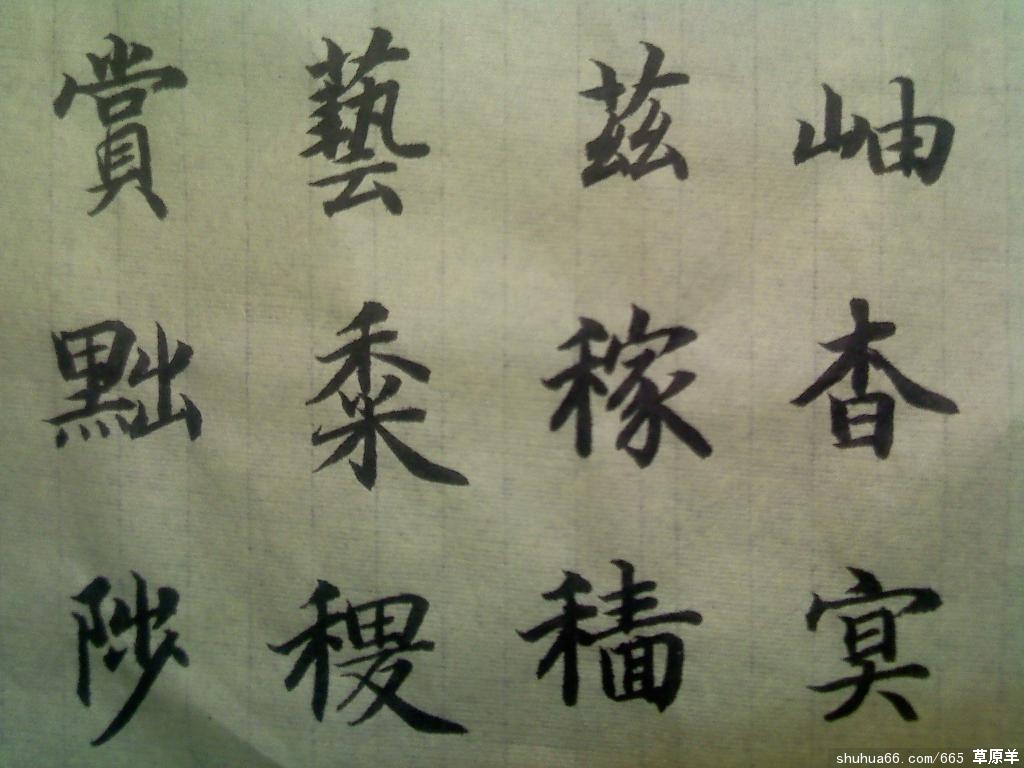 岫杳冥
茲稼穡
藝黍稷
賞黜陟
shuhua66.com/665 草原羊